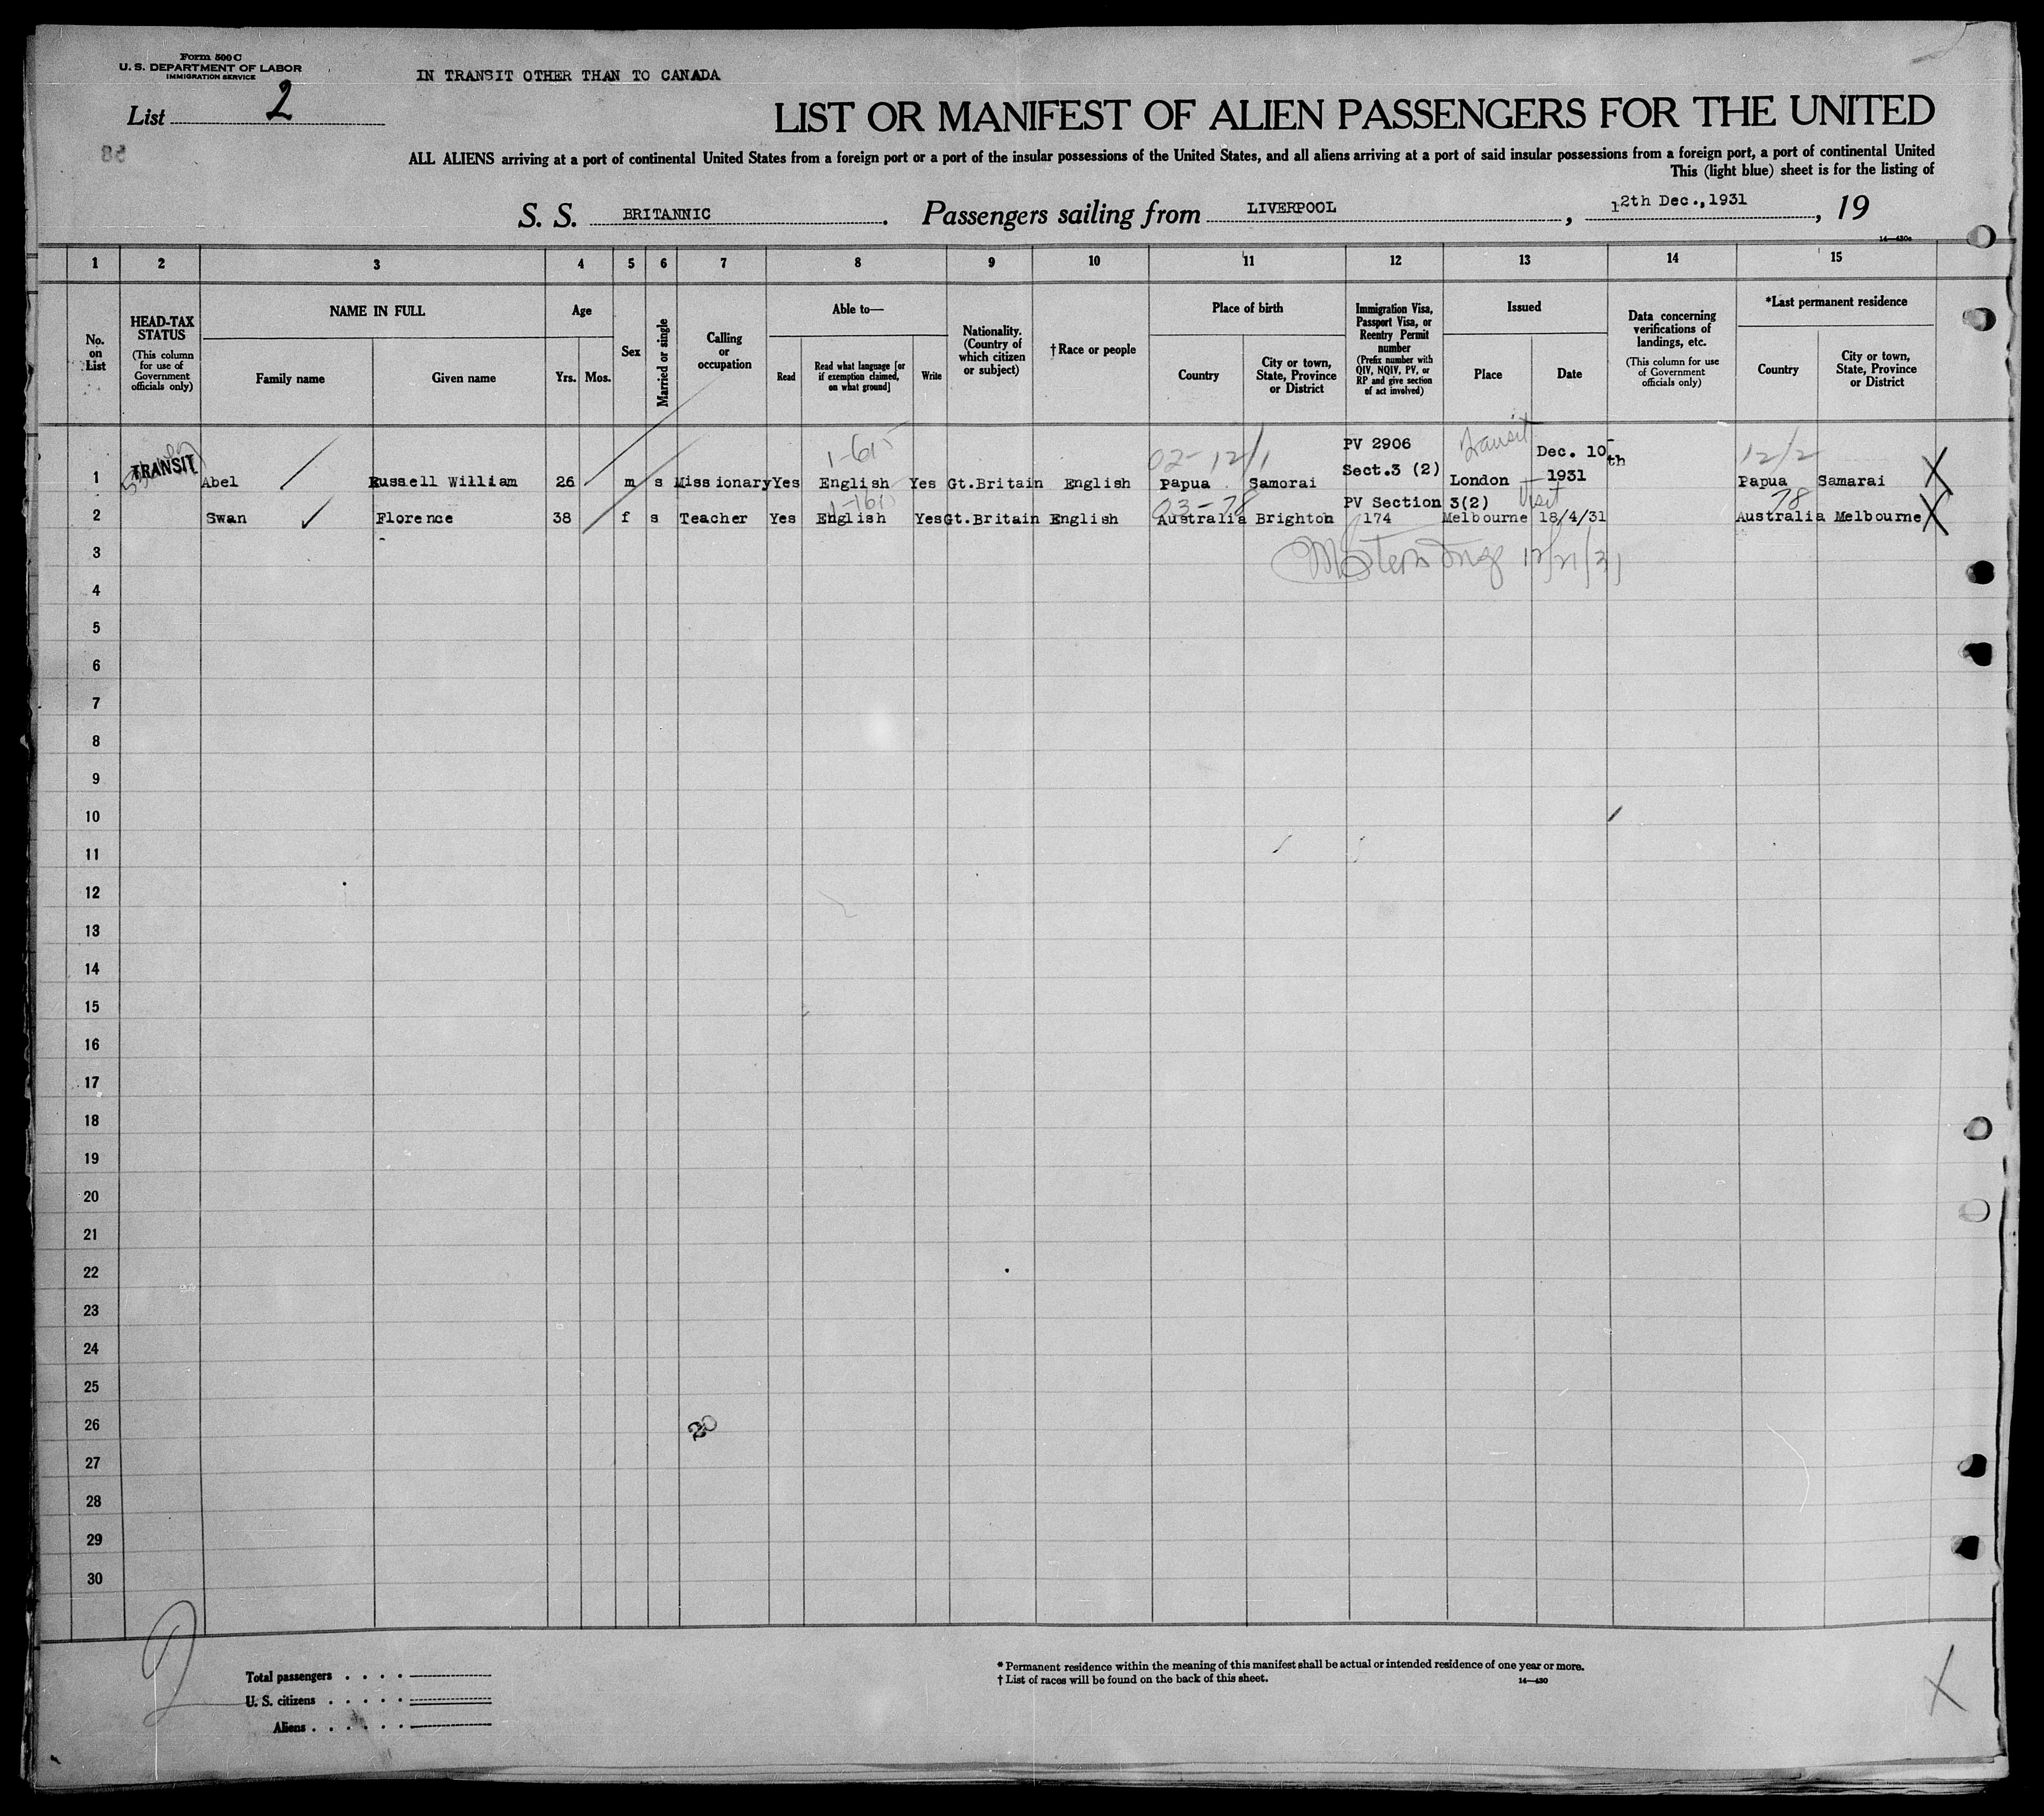 Form 500 C
U. S. DEPARTMENT OF LABOR
IMMIGRATION SERVICE
IN TRANSIT OTHER THAN TO CANADA
List 2
58
LIST OR MANIFEST OF ALIEN PASSENGERS FOR THE UNITED
ALL ALIENS arriving at a port of continental United States from a foreign port or a port of the insular possessions of the United States, and all aliens arriving at a port of said insular possessions from a foreign port, a port of continental United
This (light blue) sheet is for the listing of
S. S. BRITANNIC. Passengers sailing from LIVERPOOL, 12th Dec.,1931, 19
14—430c
1 2 3 4 5 6 7 8 9 10 11 12 13 14 15
No. on List
HEAD-TAX STATUS
(This column for use of Government officials only)
NAME IN FULL
Family name Given name
Age
Yrs. Mos.
Sex
Married or single
Calling or occupation
Able to—
Read
Read what language [or if exemption claimed, on what ground]
Write
Nationality. (Country of which citizen or subject)
† Race or people
Place of birth
Country
City or town, State, Province or District
Immigration Visa, Passport Visa, or Reentry Permit number
(Prefix number with QIV, NQIV, PV, or RP and give section of act involved)
Issued
Place Date
Data concerning verifications of landings, etc.
(This column for use of Government officials only)
*Last permanent residence
Country
City or town, State, Province or District
1-615 02-12/1 PV 2906 Transit Dec. 10th 12/2
1 TRANSIT Abel Russell William 26 m s Missionary Yes English Yes Gt.Britain English Papua Samorai Sect.3 (2) London 1931 Papua Samarai X
1-160 03-78 PV Section 3(2) Visit 78
2 Swan Florence 38 f s Teacher Yes English Yes Gt.Britain English Australia Brighton 174 Melbourne 18/4/31 Australia Melbourne X
3 12/21/31
4
5
6
7
8
9
10
11
12
13
14
15
16
17
18
19
20
21
22
23
24
25
26 20
27
28
29
30
2
Total passengers . . . .
U. S. citizens . . . . .
Aliens . . . . . .
* Permanent residence within the meaning of this manifest shall be actual or intended residence of one year or more.
† List of races will be found on the back of this sheet.
14—430
X